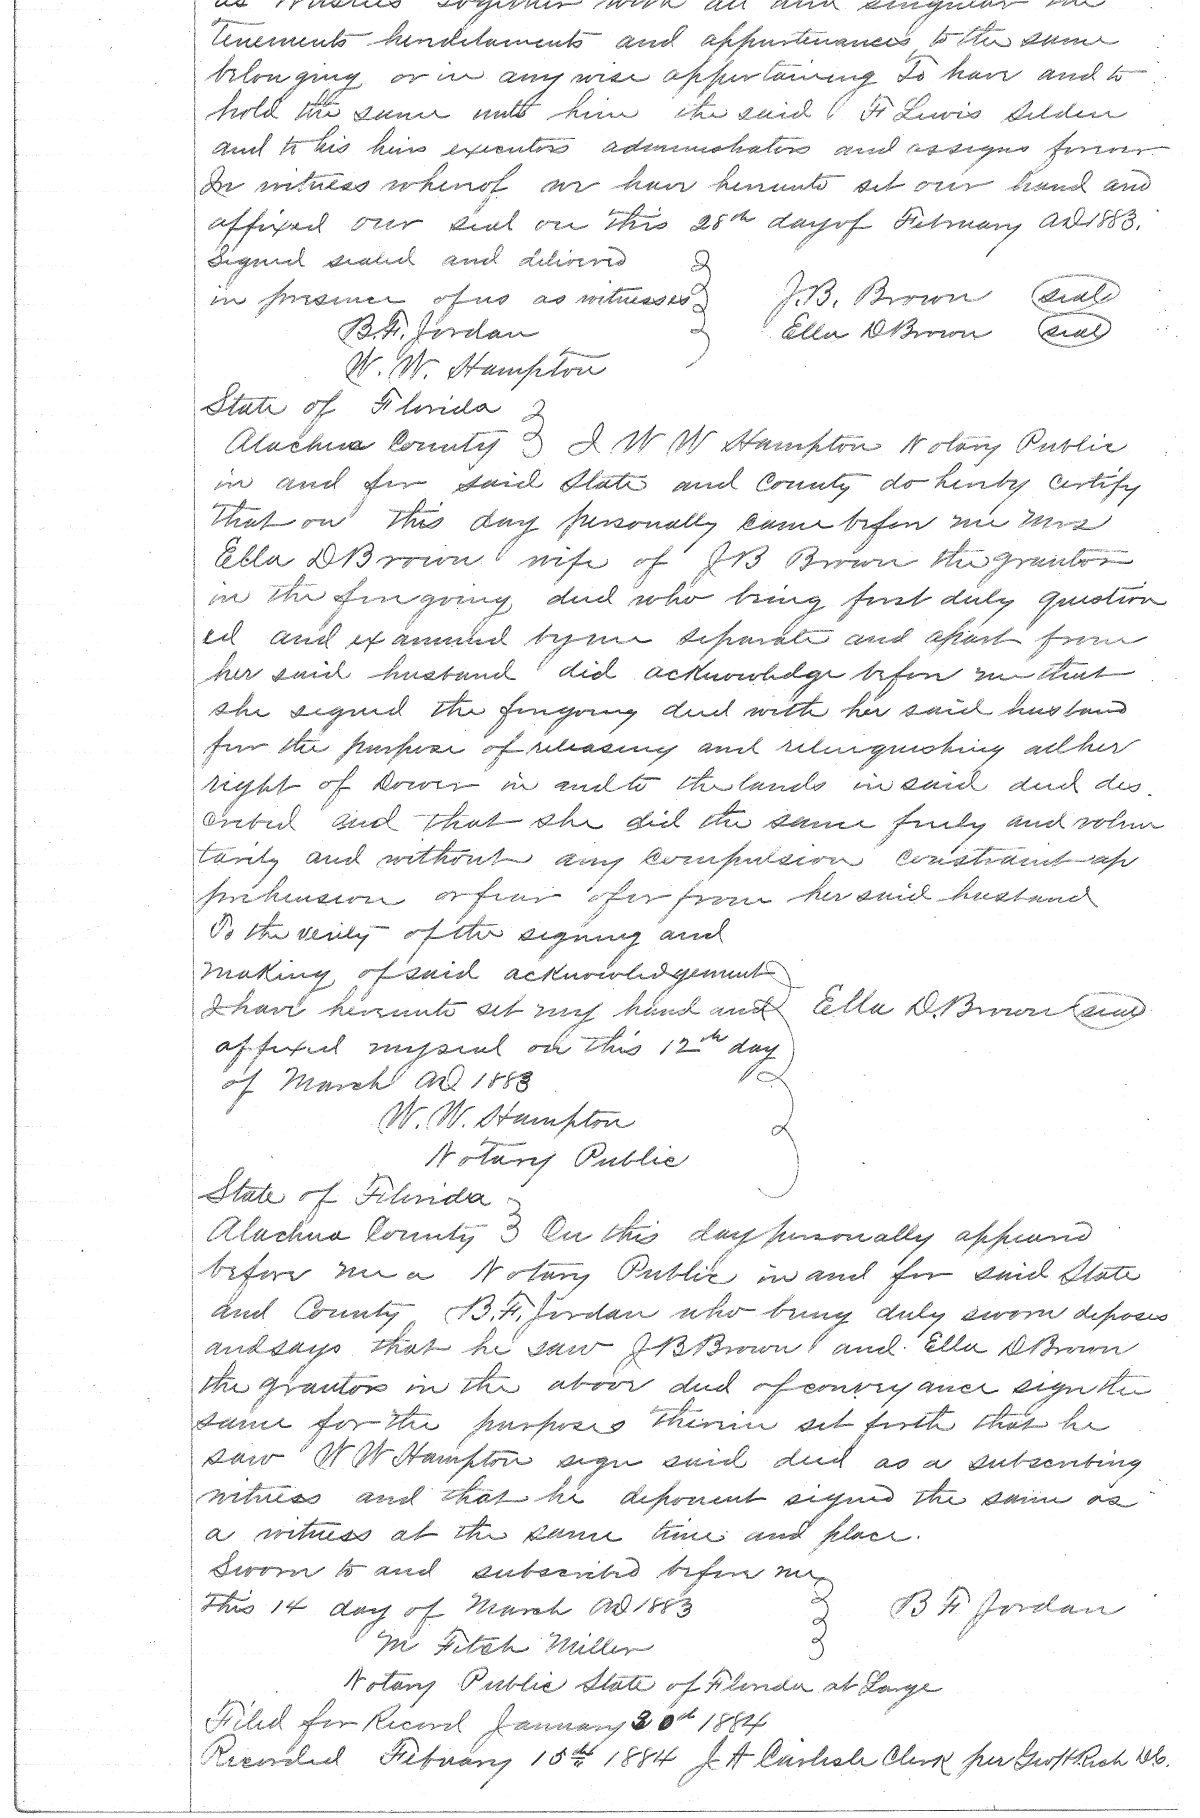 Together with all and singular the
tenements hereditaments and appurtenances to the same
belonging or in any wise appertaining To have and to
hold the same unto him the said F Lewis Selden
and to his heirs executors administrators and assigns forever
In witness whereof we have hereunto set our hand and
affixed our seal on this 28th day of February AD 1883.
Signed sealed and delivered
in presence of us as witnesses J. B. Brown seal
B. F. Jordan Ella D Brown seal
W. W. Hampton
State of Florida
Alachua County I W W Hampton Notary Public
in and for said State and County do hereby certify
that on this day personally came before me Mrs
Ella D Brown wife of J B Brown the grantor
in the foregoing deed who being first duly question
ed and examined by me separate and apart from
her said husband did acknowledge before me that
she signed the foregoing deed with her said husband
for the purpose of releasing and relinquishing all her
right of Dower in and to the lands in said deed des
cribed and that she did the same freely and volun
tarily and without any compulsion constraint ap
prehension or fear of or from her said husband
To the verity of the signing and
making of said acknowledgement
I have hereunto set my hand and Ella D. Brown seal
affixed my seal on this 12th day
of March AD 1883
W. W. Hampton
Notary Public
State of Florida
Alachua County On this day personally appeared
before me a Notary Public in and for said State
and County B. F. Jordan who being duly sworn deposes
and says that he saw J B Brown and Ella D Brown
the grantors in the above deed of conveyance sign the
same for the purposes therein set forth that he
saw W W Hampton sign said deed as a subscribing
witness and that he deponent signed the same as
a witness at the same time and place.
Sworn to and subscribed before me
this 14 day of March AD 1883 B F Jordan
M Fitch Miller
Notary Public State of Florida at Large
Filed for Record January 30th 1884
Recorded February 15th 1884 J A Carlisle Clerk per Geo H Rich D.C.